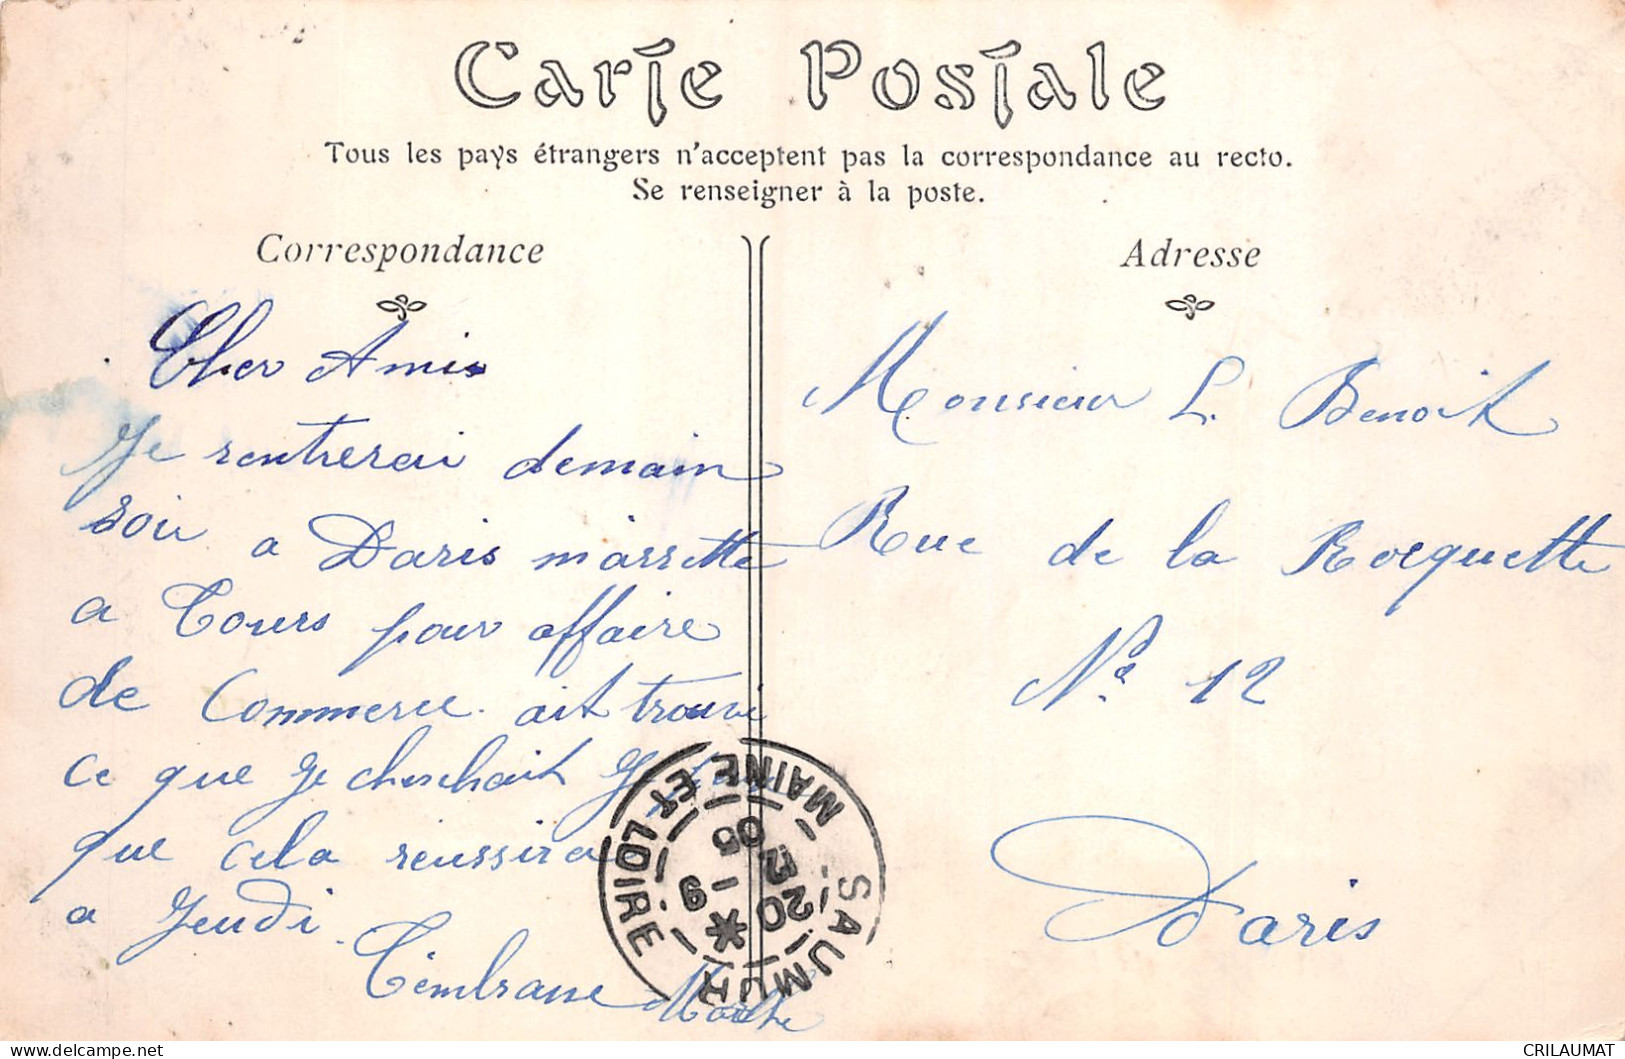 Carte Postale
Tous les pays étrangers n'acceptent pas la correspondance au recto.
Se renseigner à la poste.
Correspondance
Cher Amis
Je rentrerai demain
soir a Paris m'arrette
a Tours pour affaire
de Commerce. ait trouvé
ce que je cherchait Je
que cela reussira
a Jeudi.
Adresse
Monsieur L. Benoit
Rue de la Rocquette
No 12
Paris
SAUMUR
MAINE ET LOIRE
20
9 - 05
CRILAUMAT